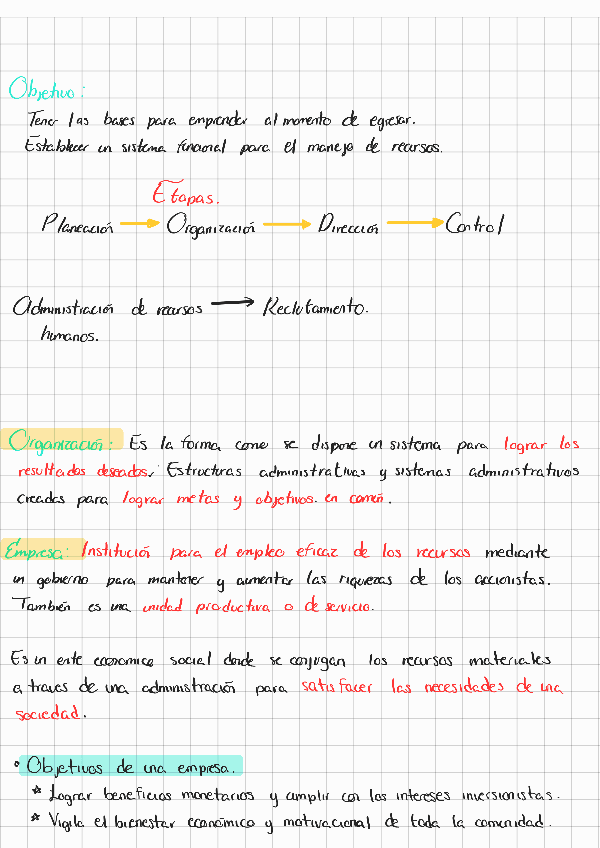 Objetivo:
Tener las bases para emprender al momento de egresar.
Establecer un sistema funcional para el manejo de recursos.
Etapas.
Planeación → Organización → Dirección → Control
Administración de recursos → Reclutamiento.
humanos.
Organización: Es la forma como se dispone un sistema para lograr los
resultados deseados. Estructuras administrativas y sistemas administrativos
creados para lograr metas y objetivos en común.
Empresa: Institución para el empleo eficaz de los recursos mediante
un gobierno para mantener y aumentar las riquezas de los accionistas.
También es una unidad productiva o de servicio.
Es un ente economico social donde se conjugan los recursos materiales
a traves de una administración para satisfacer las necesidades de una
sociedad.
• Objetivos de una empresa.
* Lograr beneficios monetarios y cumplir con los intereses inversionistas.
* Vigila el bienestar económico y motivacional de toda la comunidad.